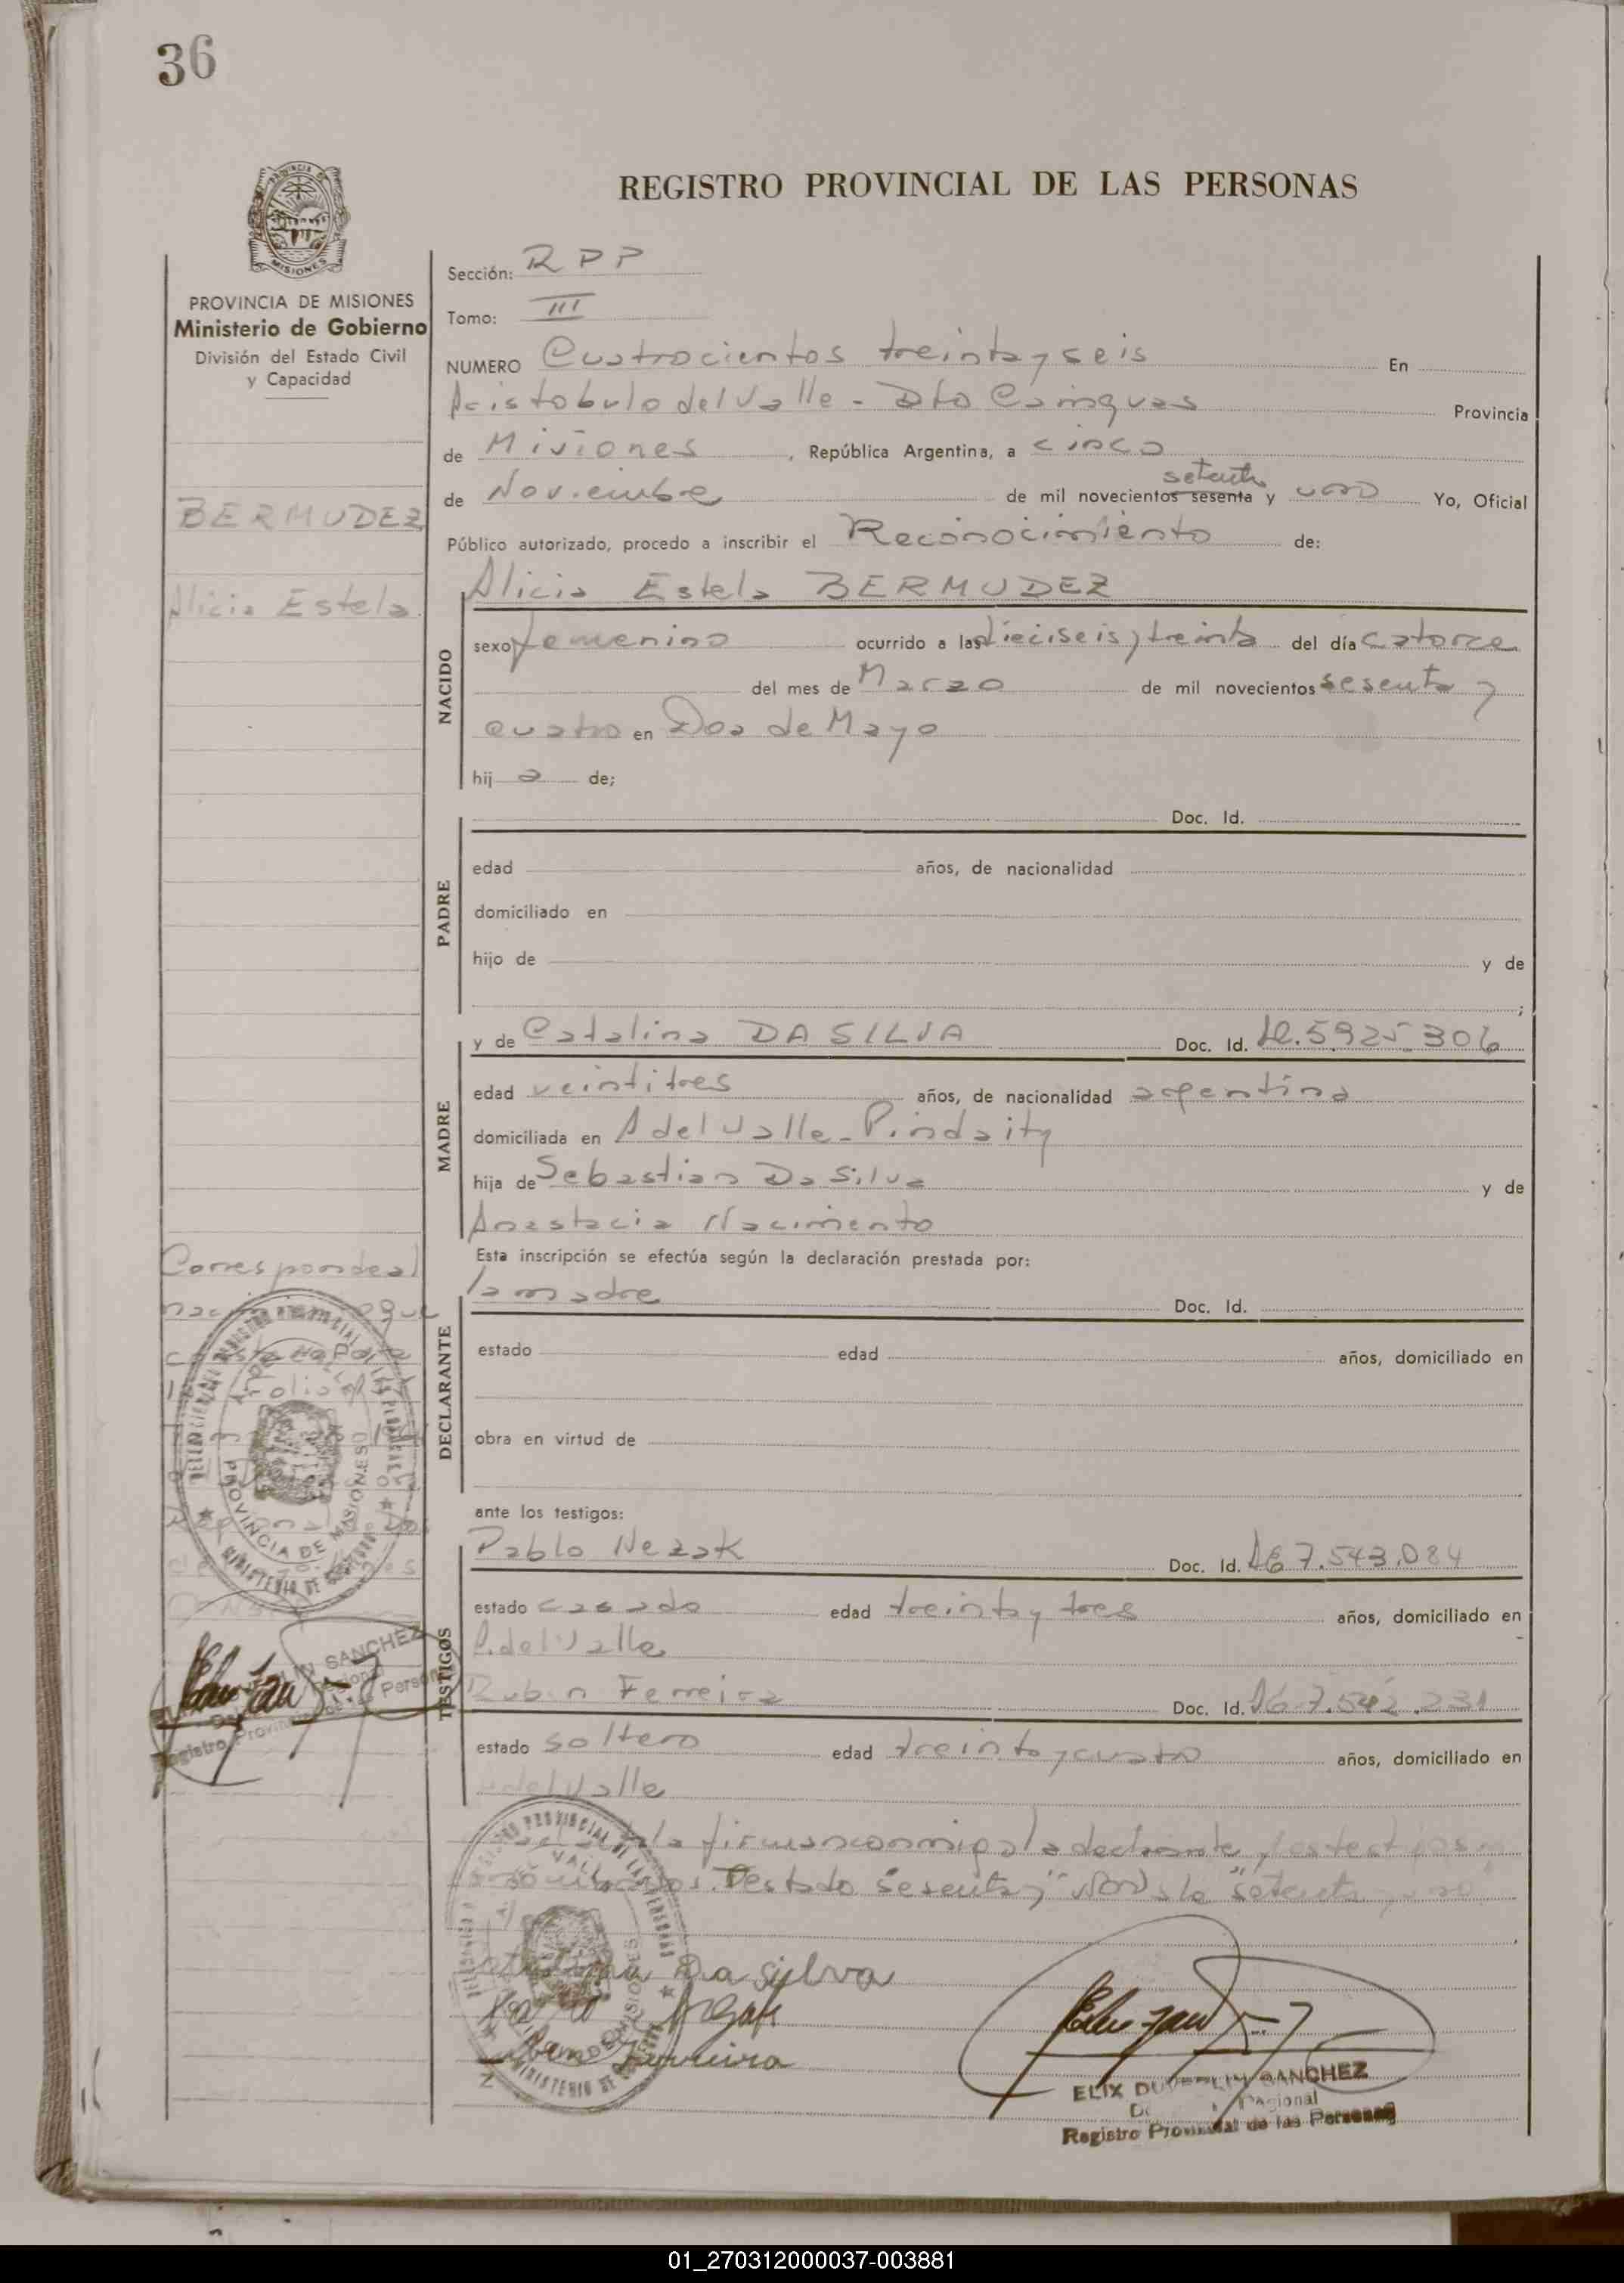 36
REGISTRO PROVINCIAL DE LAS PERSONAS
MISIONES
PROVINCIA DE MISIONES
Ministerio de Gobierno
División del Estado Civil
y Capacidad
BERMUDEZ
Alicia Estela
Sección: RPP
Tomo: III
NUMERO Cuatrocientos treinta y seis En
Aristobulo del Valle - Dto Cainguas Provincia
de Misiones, República Argentina, a cinco
setenta
de Noviembre de mil novecientos sesenta y uno Yo, Oficial
Público autorizado, procedo a inscribir el Reconocimiento de:
Alicia Estela BERMUDEZ
NACIDO
sexo femenino ocurrido a las dieciseis y treinta del día catorce
del mes de Marzo de mil novecientos sesenta y
cuatro en Dos de Mayo
hij a de;
Doc. Id.
PADRE
edad años, de nacionalidad
domiciliado en
hijo de y de
;
y de Catalina DA SILVA Doc. Id. LC. 5.925.306
MADRE
edad veintitres años, de nacionalidad argentina
domiciliada en A del Valle - Pindaity
hija de Sebastian Da Silva y de
Anastacia Nacimento
Esta inscripción se efectúa según la declaración prestada por:
la madre Doc. Id.
DECLARANTE
estado edad años, domiciliado en
obra en virtud de
Corresponde al
ante los testigos:
Pablo Nezak Doc. Id. LE 7.543.084
TESTIGOS
estado casado edad treinta y tres años, domiciliado en
A. del Valle
Ruben Ferreira Doc. Id. LE 7.542.231
estado soltero edad treinta y cuatro años, domiciliado en
A del Valle
firman conmigo la declarante y testigos
Testado "sesenta y" Vale "setenta
PROVINCIA DE MISIONES
SANCHEZ
Registro Provincial de las Personas
Catalina Da Silva
Pablo Nezak
Ruben Ferreira
ELIX SANCHEZ
Regional
Registro Provincial de las Personas
01_270312000037-003881